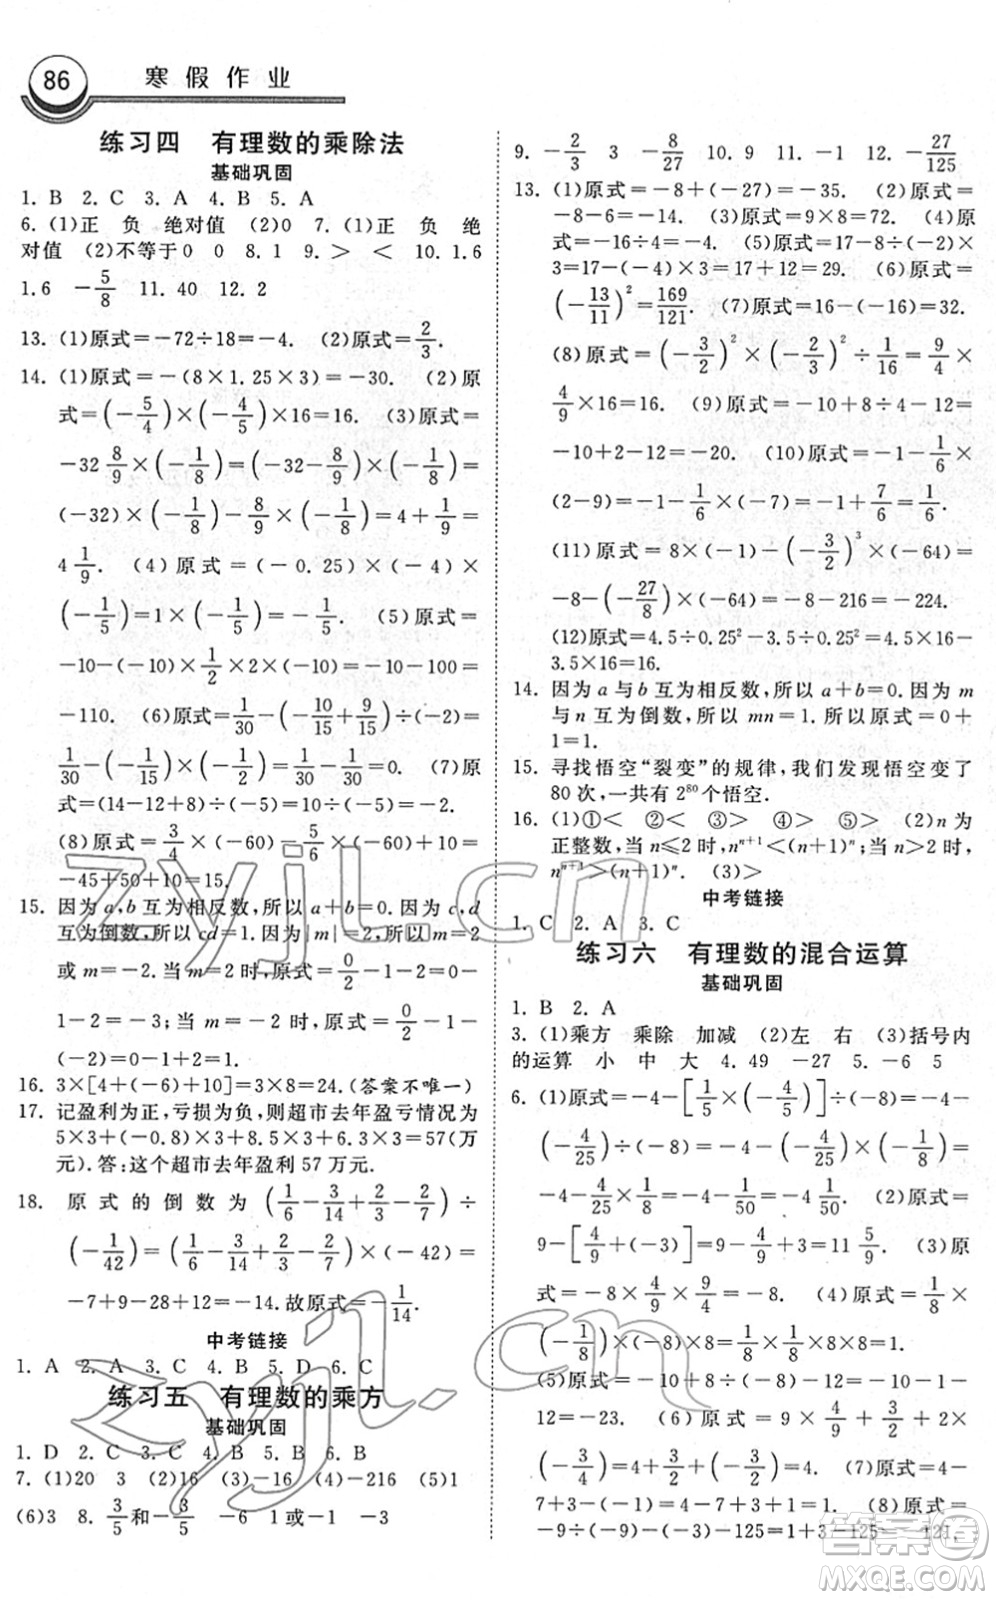 86 寒假作业
练习四 有理数的乘除法
基础巩固
1. B 2. C 3. A 4. B 5. A
6. (1)正 负 绝对值 (2)0 7. (1)正 负 绝
对值 (2)不等于0 0 8. 1 9. > < 10. 1.6
1.6 -5/8 11. 40 12. 2
13. (1)原式=-72÷18=-4. (2)原式=2/3.
14. (1)原式=-(8×1.25×3)=-30. (2)原
式=(-5/4)×(-4/5)×16=16. (3)原式=
-32 8/9×(-1/8)=(-32-8/9)×(-1/8)=
(-32)×(-1/8)-8/9×(-1/8)=4+1/9=
4 1/9. (4)原式=(-0.25)×(-4)×
(-1/5)=1×(-1/5)=-1/5. (5)原式=
-10-(-10)×1/2×2×(-10)=-10-100=
-110. (6)原式=1/30-(-10/15+9/15)÷(-2)=
1/30-(-1/15)×(-1/2)=1/30-1/30=0. (7)原
式=(14-12+8)÷(-5)=10÷(-5)=-2.
(8)原式=3/4×(-60)-5/6×(-60)+10=
-45+50+10=15.
15. 因为a,b互为相反数,所以a+b=0.因为c,d
互为倒数,所以cd=1.因为|m|=2,所以m=2
或m=-2.当m=2时,原式=0/2-
1-2=-3;当m=-2时,原式=0/-2-
1-(-2)=0-1+2=1.
16. 3×[4+(-6)+10]=3×8=24.(答案不唯一)
17. 记盈利为正,亏损为负,则超市去年盈亏情况为
5×3+(-0.8)×3+8.5×3+6.3×3=57(万
元).答:这个超市去年盈利57万元.
18. 原式的倒数为(1/6-3/14+2/3-2/7)÷
(-1/42)=(1/6-3/14+2/3-2/7)×(-42)=
-7+9-28+12=-14.故原式=-1/14.
中考链接
1. A 2. A 3. C 4. B 5. D 6. C
练习五 有理数的乘方
基础巩固
1. D 2. C 3. C 4. B 5. B 6. A
7. (1)20 3 (2)16 (3)-16 (4)-216 (5)1
(6)3 8. 3/5和-3/5 -6 1或-1 -3
9. -2/3 3 -8/27 10. 9 11. -1 12. -27/125
13. (1)原式=-8+(-27)=-35. (2)原式=
-8-8=-16. (3)原式=9×8=72. (4)原
式=-16÷4=-4. (5)原式=17-(-2)÷(-2)×
3=17-(-4)×3=17+12=29. (6)原式=
(-13/11)²=169/121. (7)原式=16-(-16)=32.
(8)原式=(-3/2)²×(-2/3)²÷1/16=9/4×
4/9×16=16. (9)原式=-10+8÷4-12=
-10+2-12=-20. (10)原式=-1-1/6×
(2-9)=-1-1/6×(-7)=-1+7/6=1/6.
(11)原式=8×(-1)-(-3/2)³×(-64)=
-8-(-27/8)×(-64)=-8-216=-224.
(12)原式=4.5÷0.25²-3.5÷(1/4)²=4.5×16-
3.5×16=16.
14. 因为a与b互为相反数,所以a+b=0.因为m
与n互为倒数,所以mn=1.所以原式=0+
1=1.
15. 寻找悟空“裂变”的规律,我们发现悟空变了
80次,一共有2⁸⁰个悟空.
16. (1)①< ②< ③> ④> ⑤> (2)n为
正整数,当n≤2时,nⁿ⁺¹<(n+1)ⁿ;当n>2时,
nⁿ⁺¹>(n+1)ⁿ. (3)>
中考链接
1. C 2. A 3. C
练习六 有理数的混合运算
基础巩固
1. B 2. A
3. (1)乘方 乘除 加减 (2)左 右 (3)括号内
的运算 小 中 大 4. 49 -27 5. -6 5
6. (1)原式=-4-[1/5×(-4/5)]÷(-8)=-4-
(-4/25)÷(-8)=-4-(-4/25)×(-1/8)=
-4-4/25×1/8=-4-1/50=-4 1/50. (2)原式=
9-[4/9+(-3)]=9-4/9+3=11 5/9. (3)原
式=-8×4/9×9/4=-8. (4)原式=1/8×
(-1/8)÷(-1/8)×8×8=1/8×1/8×8×8=1.
(5)原式=18÷(-2)-2-12=-9-2-
12=-23. (6)原式=9×4/9+3/2+
(-3/2)=4+3/2+(-3/2)=4. (7)原式=4-
7+3+(-1)=-1. (8)原式=
-9÷(-9)-(-3)-125=1+3-125=-121.
zyjl.cn
zyjl.cn
答案圈
MXQE.COM